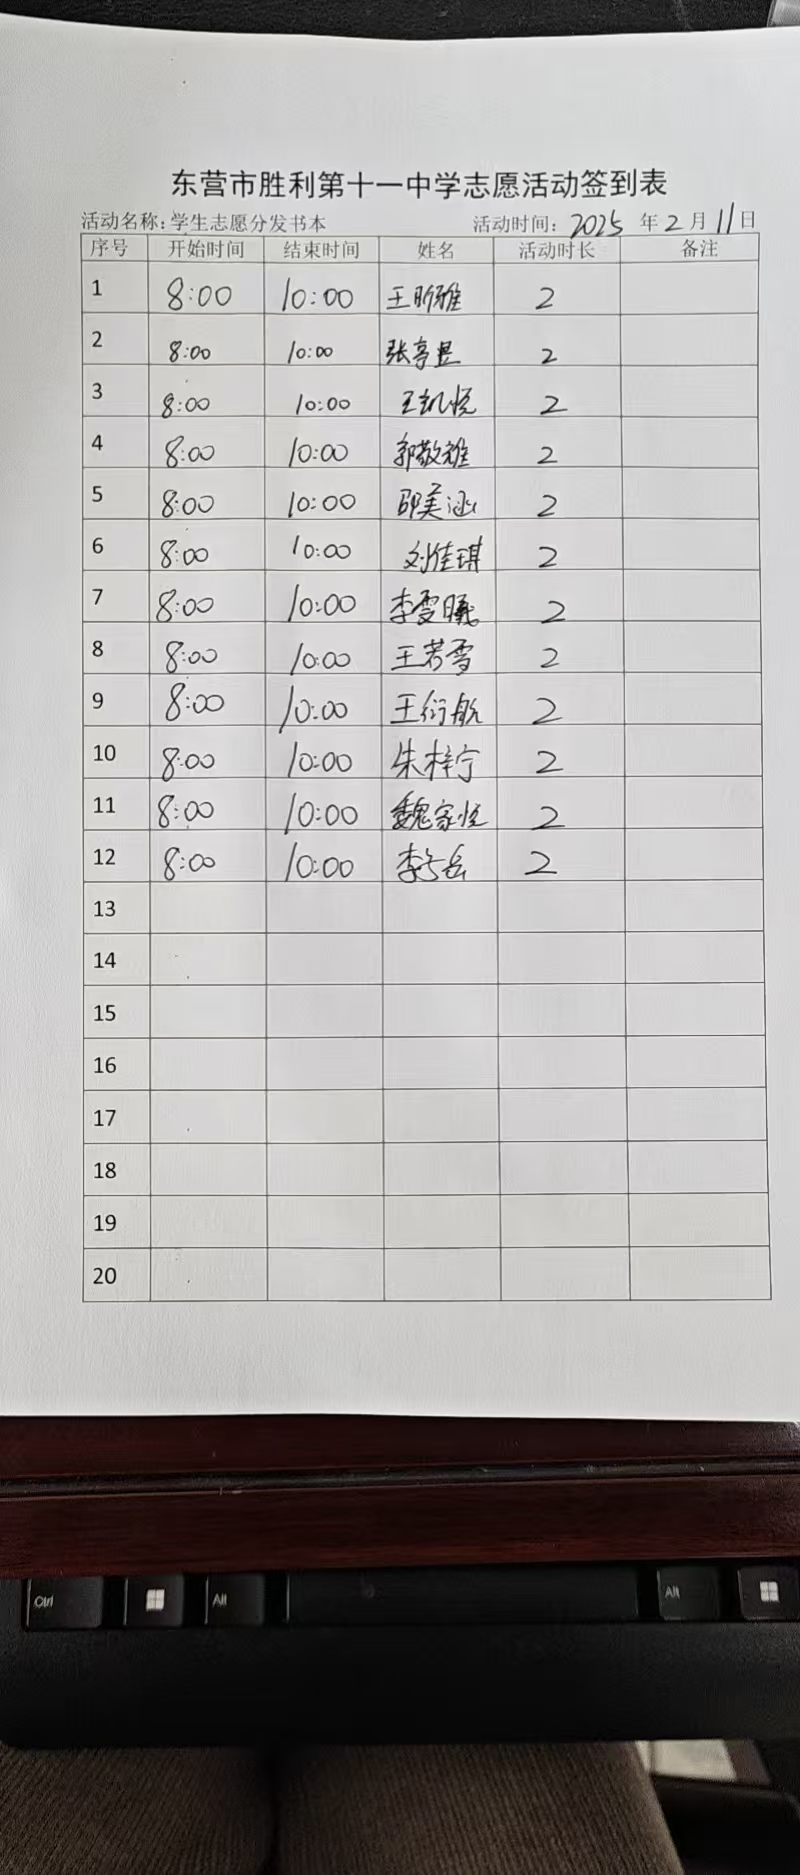 东营市胜利第十一中学志愿活动签到表
活动名称：学生志愿分发书本 活动时间：2025 年 2 月 11 日
序号 开始时间 结束时间 姓名 活动时长 备注
1 8:00 10:00 王昕雅 2
2 8:00 10:00 张亭昱 2
3 8:00 10:00 王凯悦 2
4 8:00 10:00 郭敬雅 2
5 8:00 10:00 邵美涵 2
6 8:00 10:00 刘佳琪 2
7 8:00 10:00 李雯曦 2
8 8:00 10:00 王若雪 2
9 8:00 10:00 王衍航 2
10 8:00 10:00 朱梓宁 2
11 8:00 10:00 魏家悦 2
12 8:00 10:00 2
13
14
15
16
17
18
19
20
Ctrl Alt Alt